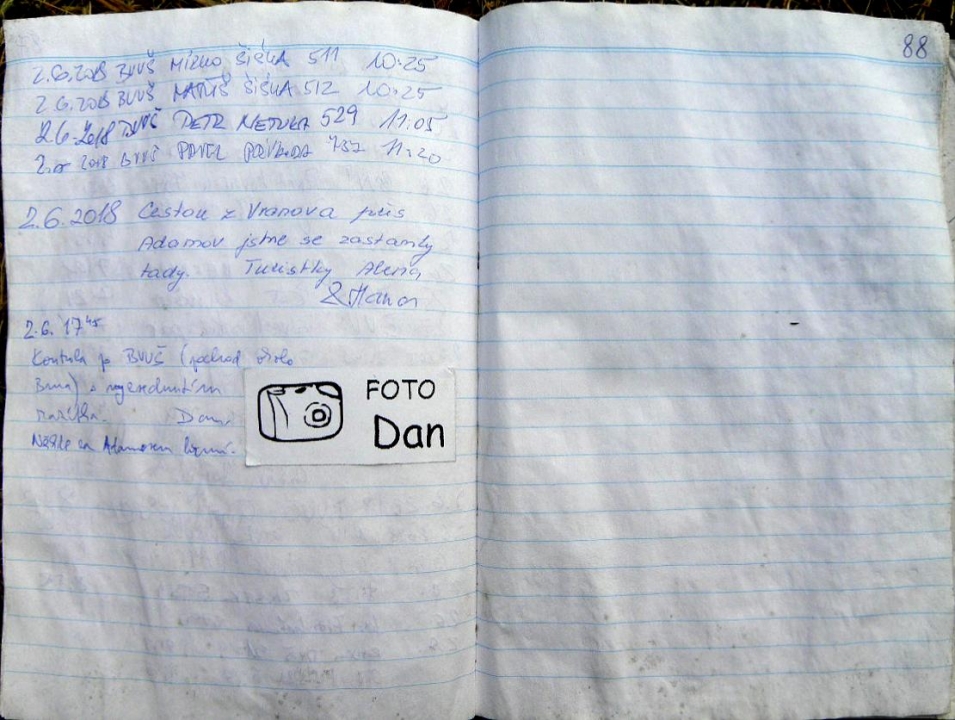 88
2.6.2018 BVVŠ MIRKO ŠIŠKA 511 10:25
2.6.2018 BVVŠ MATĚJ ŠIŠKA 512 10:25
2.6.2018 BVVŠ PETR NETUKA 529 11:05
2.6. 2018 BVVŠ PAVEL 732 11:20
2.6.2018 Cestou z Vranova přes
Adamov jsme se zastavily
tady. Turistky Alena
& Hana
2.6. 17⁴⁵
Kontrola po BVVŠ (pochod okolo
Brna) s
Dan.
za Adamovem
FOTO
Dan